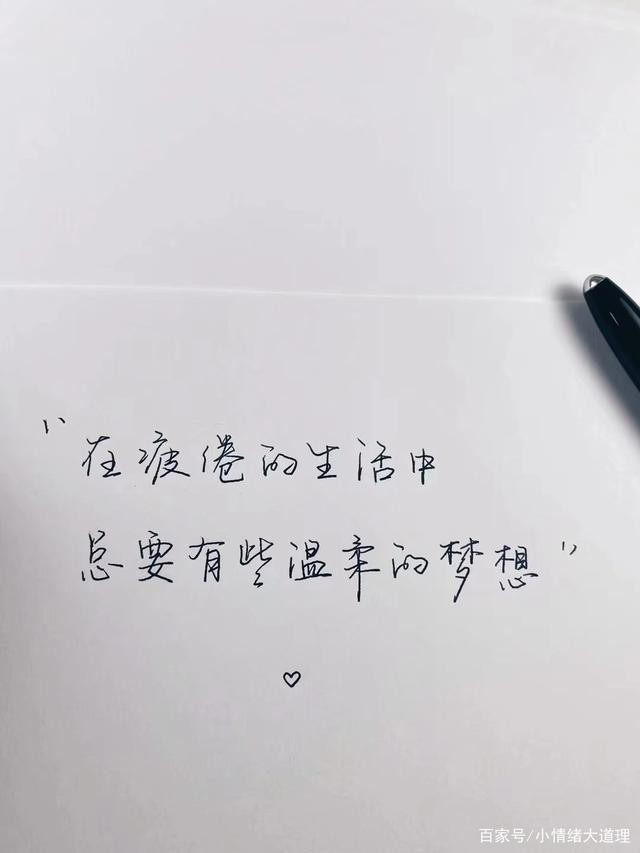 “在疲倦的生活中
总要有些温柔的梦想”
♡
百家号/小情绪大道理